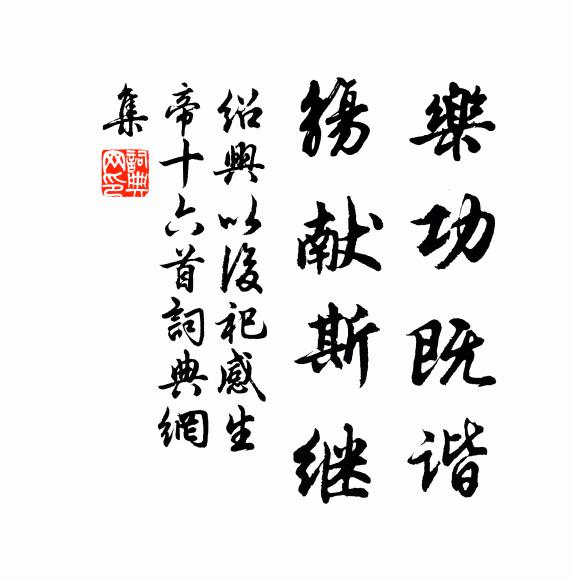 樂功既谐
觴献斯继
绍興以後祀感生
帝十六首詞典網
集
詞典網印